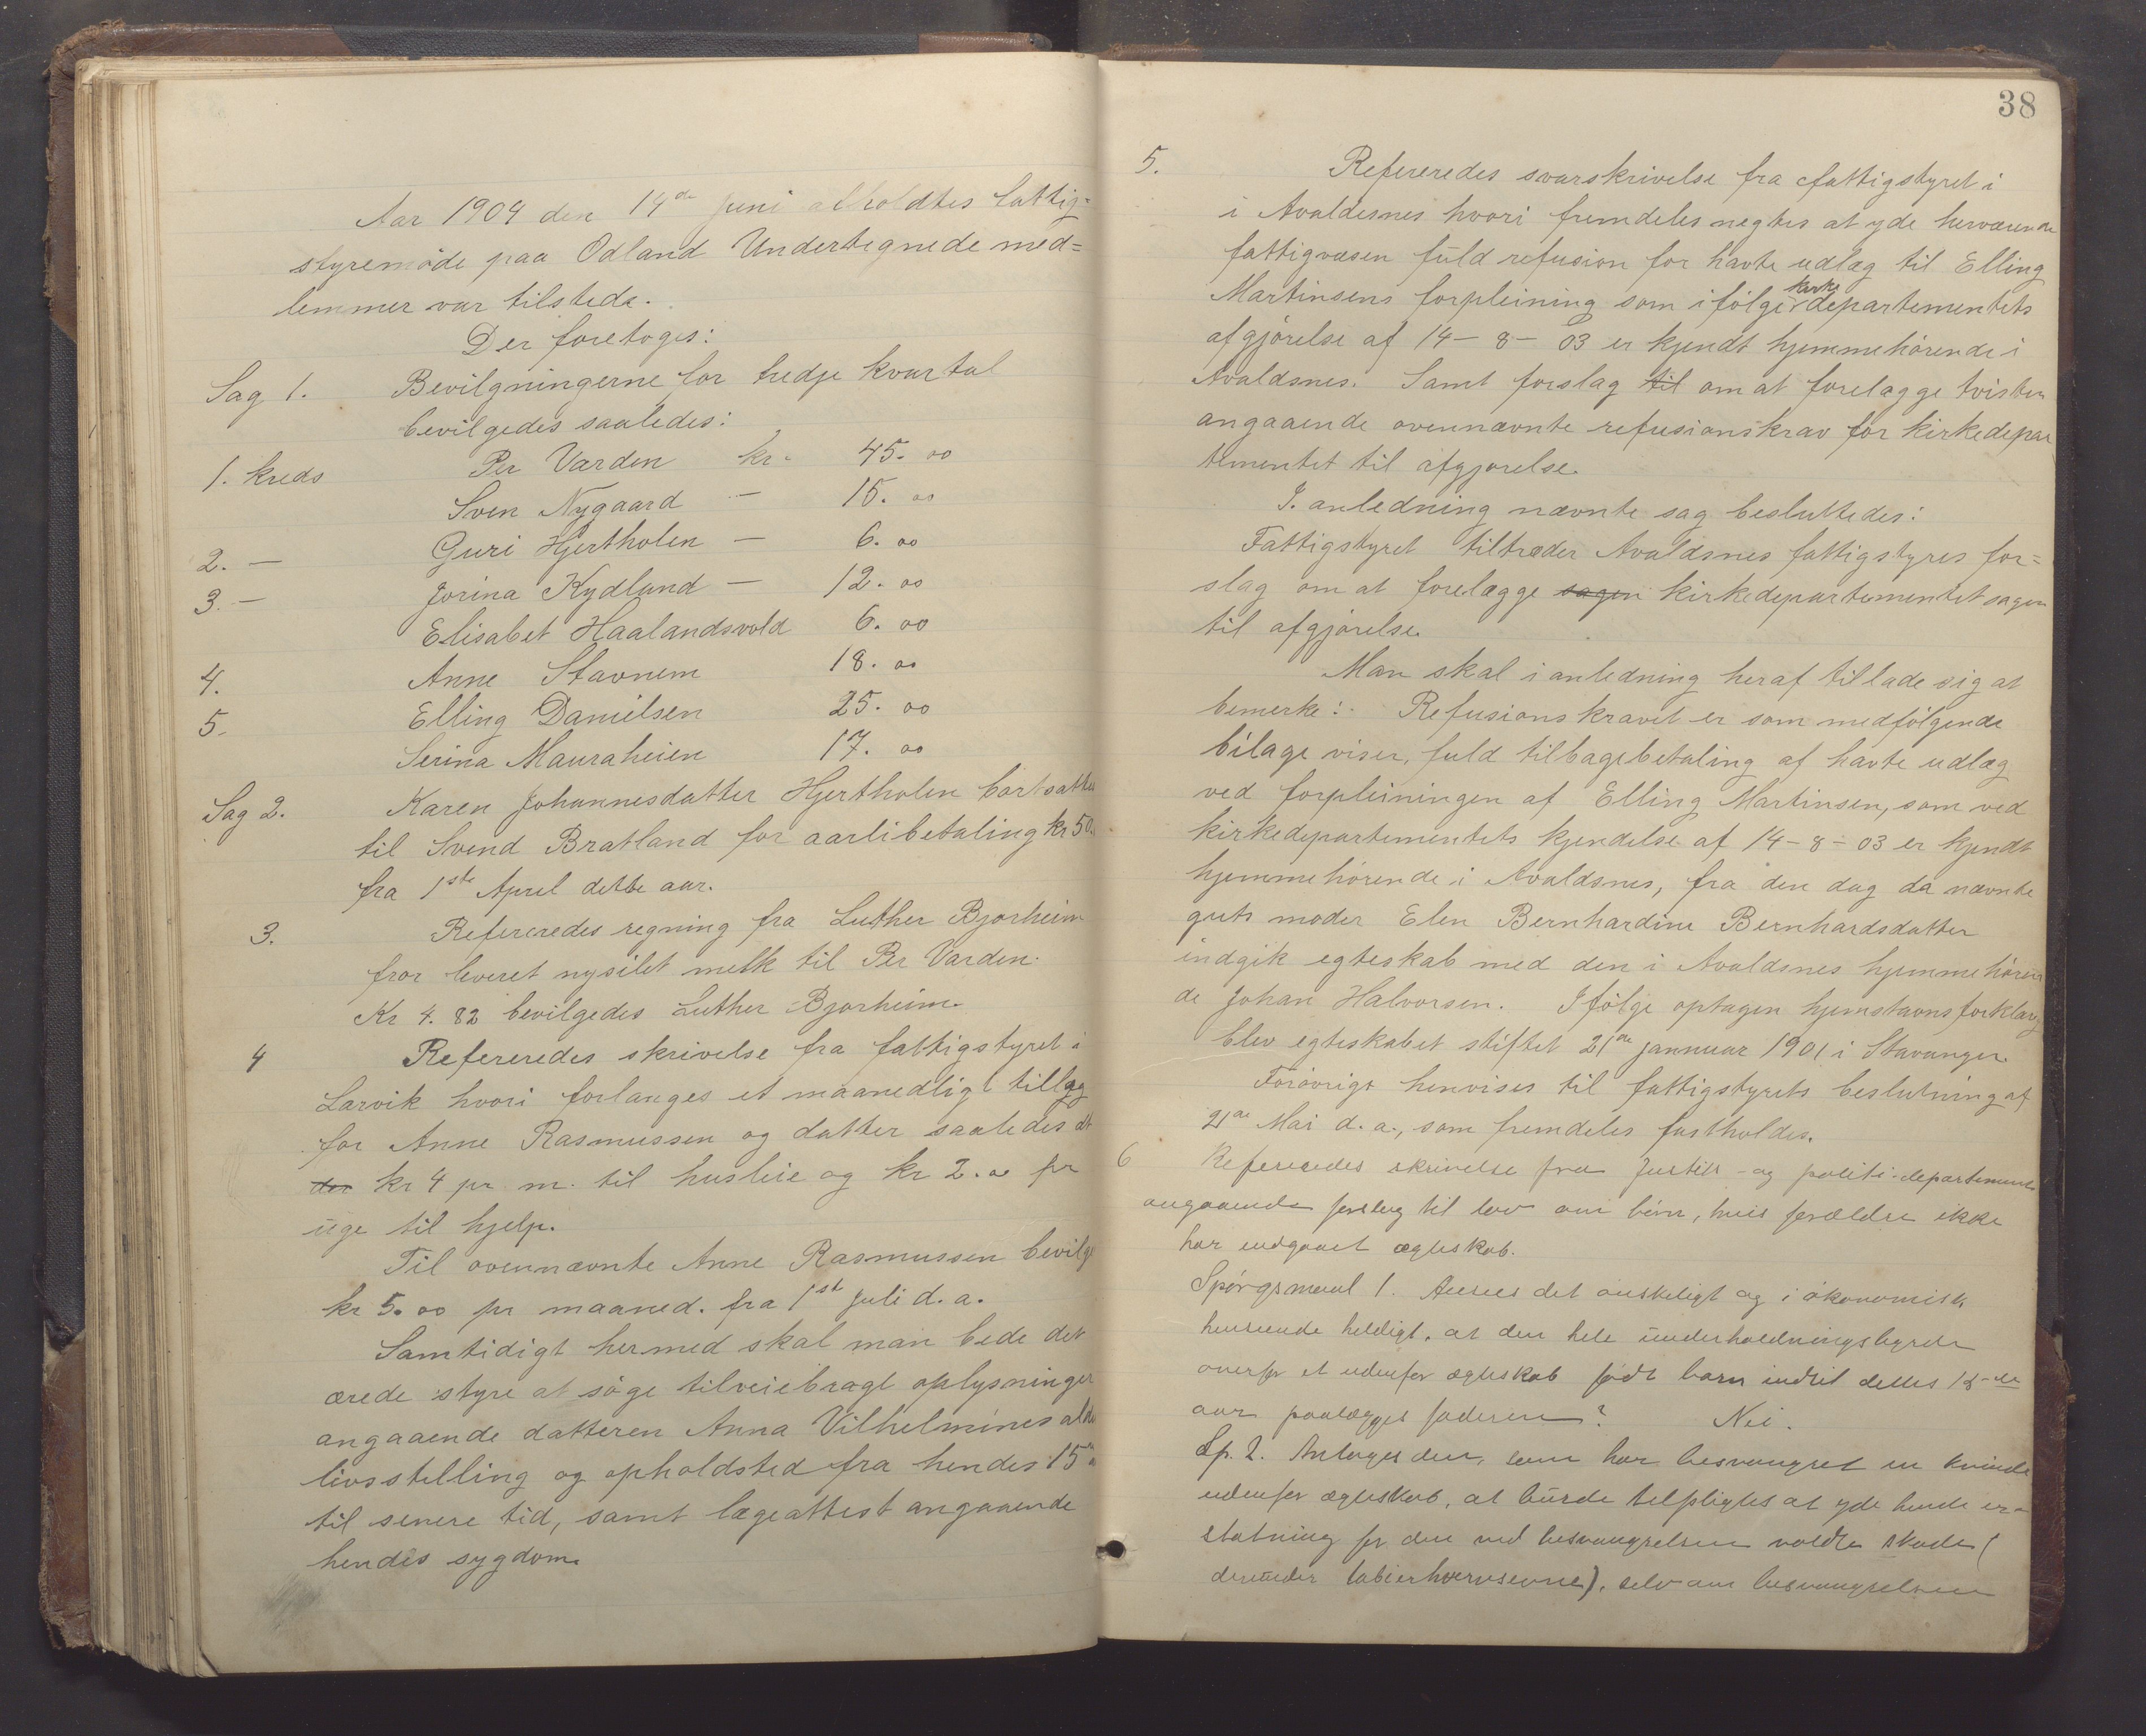 Aar 1904 den 14de Juni afholdtes fattig=
styremöde paa Odland Undertegnede med=
lemmer var tilstede.
Der foretoges:
Sag 1. Bevilgningerne for tredje kvartal
bevilgedes saaledes:
1. kreds Per Varden kr. 45. 00
Sven Nygaard — 15. 00
2. — Guri Hjertholen — 6. 00
3. — Jorina Kydland — 12. 00
Elisabet Haalandsvold 6. 00
4. Anne Stavnem 18. 00
5. Elling Danielsen 25. 00
Serina Mauraheien 17. 00
Sag 2. Karen Johannesdatter Hjertholen bortsattes
til Svend Bratland for aarlibetaling kr 50.
fra 1ste April dette aar.
3. Refereredes regning fra Luther Bjorheim
fror leveret nysilet melk til Per Varden.
Kr 4. 82 bevilgedes Luther Bjorheim.
4 Refereredes skrivelse fra fattigstyret i
Larvik hvori forlanges et maanedligt tillæg
for Anne Rasmussen og datter saaledes at
der kr 4 pr m. til husleie og kr 2. 00 pr
uge til hjelp.
Til ovennævnte Anne Rasmussen bevilg
kr 5. 00 pr maaned. fra 1ste Juli d. a.
Samtidigt hermed skal man bede det
ærede styre at söge tilveiebragt oplysninger
angaaende datteren Anna Vilhelmines alde
livsstilling og opholdsted fra hendes 15
til senere tid, samt lægeattest angaaende
hendes sygdom.
38
5. Refereredes svarskrivelse fra fattigstyret i
i Avaldesnes hvori fremdeles negtes at yde herværende
fattigvæsen fuld refusion for havte udlæg til Elling
Martinsens forpleining som ifölge kirke departementets
afgjörelse af 14 – 8 – 03 er kjendt hjemmehörende i
Avaldsnes. Samt forslag til om at forelægge tvisten
angaaende ovennævnte refusionskrav for kirkedepar
tementet til afgjorelse.
I. anledning nævnte sag besluttedes:
Fattigstyret tiltræder Avaldsnes fattigstyres for=
slag om at forelægge sagen kirkedepartementet sagen
til afgjörelse.
Man skal i anledning heraf tillade sig at
bemerke: Refusionskravet er som medfölgende
bilage viser, fuld tilbagebetaling af havte udlæg
ved forpleiningen af Elling Martinsen, som ved
kirkedepartementets kjendelse af 14 – 8 – 03 er kjendt
hjemmehörende i Avaldsnes, fra den dag da nævnte
guts moder Elen Bernhardine Bernhardsdatter
indgik egteskab med den i Avaldsnes hjemmehören
de Johan Halvorsen. Ifölge optagen hjemstavnsforklarg
blev egteskabet stiftet 21de jannuar 1901 i Stavanger.
Foröörigt henvises til fattigstyrets beslutning af
21de Mai d. a., som fremdeles fastholdes.
6 Refereredes skrivelse fra Justits- og politi-departement
angaaende forslag til lov om börn, hvis forældre ikke
har indgaaet ægteskab.
Spörgsmaal 1. Ansees det önskeligt og i ökonomisk
henseende heldigt, at den hele underholdningsbyrde
overfor et udenfor ægteskab födt barn indtil dettes 18-de
aar paalægges faderen? Nei.
Sp. 2. Antages den, som har besvangret en kvinde
udenfor ægteskab, at burde tilpligtes at yde hende er-
statning for den ved besvangrelsen voldte skade (
derunder tabt erhvervsevne), selv om besvangrelsen